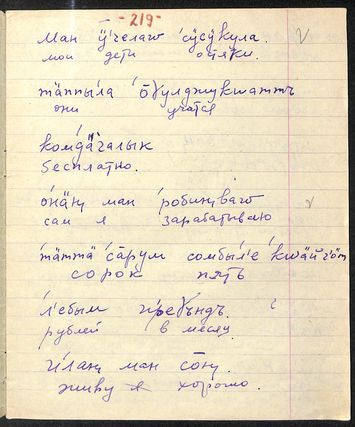 - 219 -
Ман ӱ́челаw сӱсӱкула.
мои дети остяки.
тäппы́ла о̄ɣулджукwаттъ
они учатся
комдä́чалык
бесплатно.
о́нäң ман робиңваw
сам я зарабатываю
тäттä са̄рум сомбы́л'е кwäйго̄т
сорок пять
л'ебым иреɣъндъ.
рублей в месяц.
и́лаң ман со̄ң.
живу я хорошо.